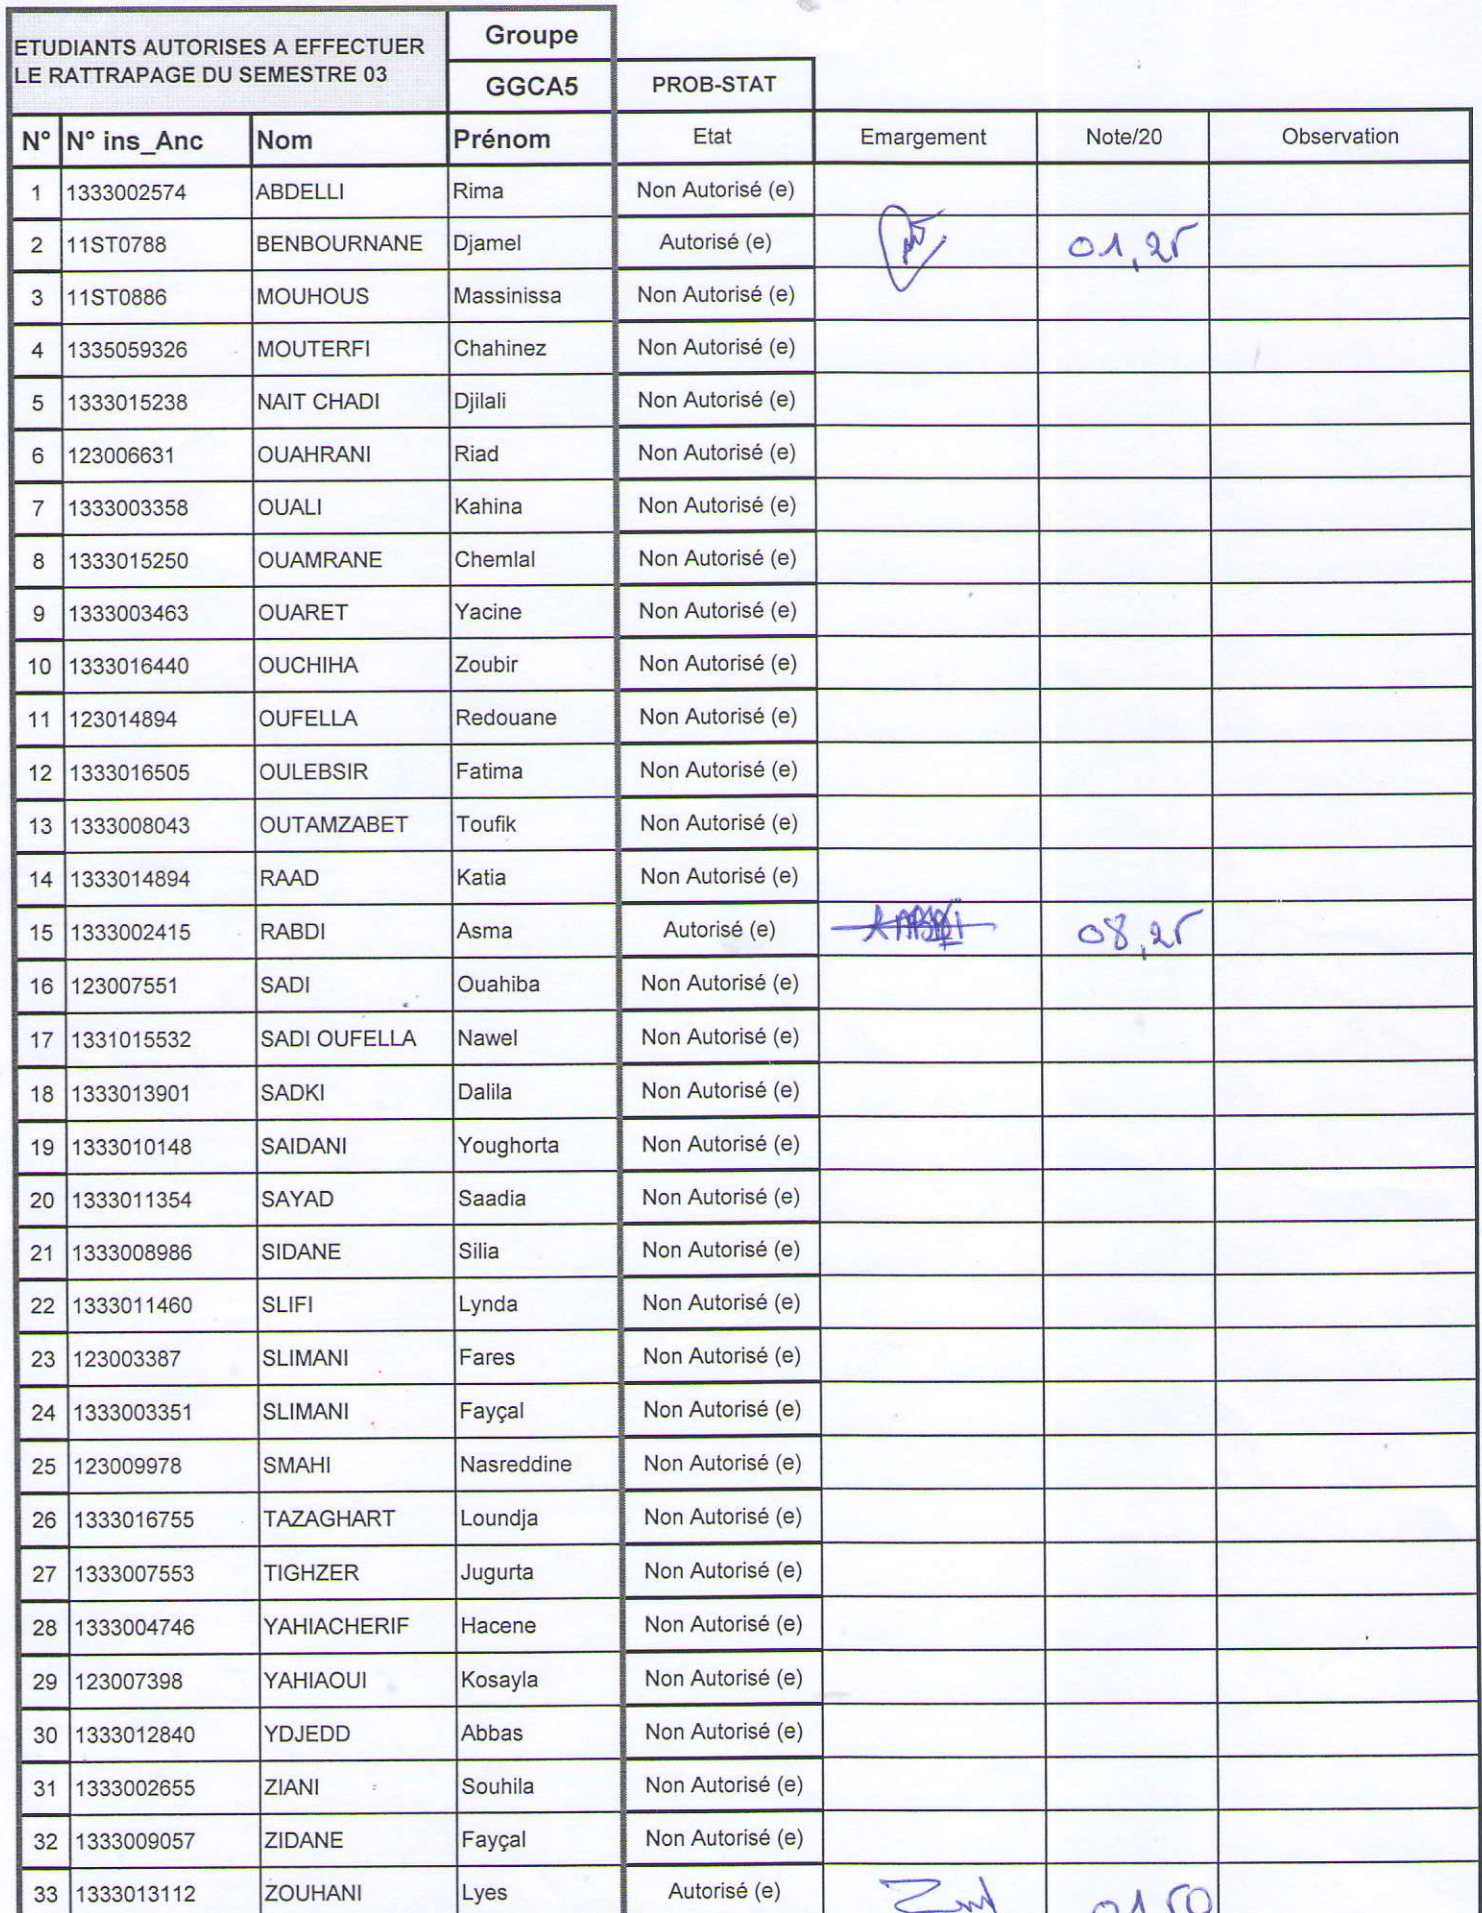 ETUDIANTS AUTORISES A EFFECTUER
LE RATTRAPAGE DU SEMESTRE 03
Groupe
GGCA5 PROB-STAT
N° N° ins_Anc Nom Prénom Etat Emargement Note/20 Observation
1 1333002574 ABDELLI Rima Non Autorisé (e)
2 11ST0788 BENBOURNANE Djamel Autorisé (e) 01,25
3 11ST0886 MOUHOUS Massinissa Non Autorisé (e)
4 1335059326 MOUTERFI Chahinez Non Autorisé (e)
5 1333015238 NAIT CHADI Djilali Non Autorisé (e)
6 123006631 OUAHRANI Riad Non Autorisé (e)
7 1333003358 OUALI Kahina Non Autorisé (e)
8 1333015250 OUAMRANE Chemlal Non Autorisé (e)
9 1333003463 OUARET Yacine Non Autorisé (e)
10 1333016440 OUCHIHA Zoubir Non Autorisé (e)
11 123014894 OUFELLA Redouane Non Autorisé (e)
12 1333016505 OULEBSIR Fatima Non Autorisé (e)
13 1333008043 OUTAMZABET Toufik Non Autorisé (e)
14 1333014894 RAAD Katia Non Autorisé (e)
15 1333002415 RABDI Asma Autorisé (e) 08,25
16 123007551 SADI Ouahiba Non Autorisé (e)
17 1331015532 SADI OUFELLA Nawel Non Autorisé (e)
18 1333013901 SADKI Dalila Non Autorisé (e)
19 1333010148 SAIDANI Youghorta Non Autorisé (e)
20 1333011354 SAYAD Saadia Non Autorisé (e)
21 1333008986 SIDANE Silia Non Autorisé (e)
22 1333011460 SLIFI Lynda Non Autorisé (e)
23 123003387 SLIMANI Fares Non Autorisé (e)
24 1333003351 SLIMANI Fayçal Non Autorisé (e)
25 123009978 SMAHI Nasreddine Non Autorisé (e)
26 1333016755 TAZAGHART Loundja Non Autorisé (e)
27 1333007553 TIGHZER Jugurta Non Autorisé (e)
28 1333004746 YAHIACHERIF Hacene Non Autorisé (e)
29 123007398 YAHIAOUI Kosayla Non Autorisé (e)
30 1333012840 YDJEDD Abbas Non Autorisé (e)
31 1333002655 ZIANI Souhila Non Autorisé (e)
32 1333009057 ZIDANE Fayçal Non Autorisé (e)
33 1333013112 ZOUHANI Lyes Autorisé (e)